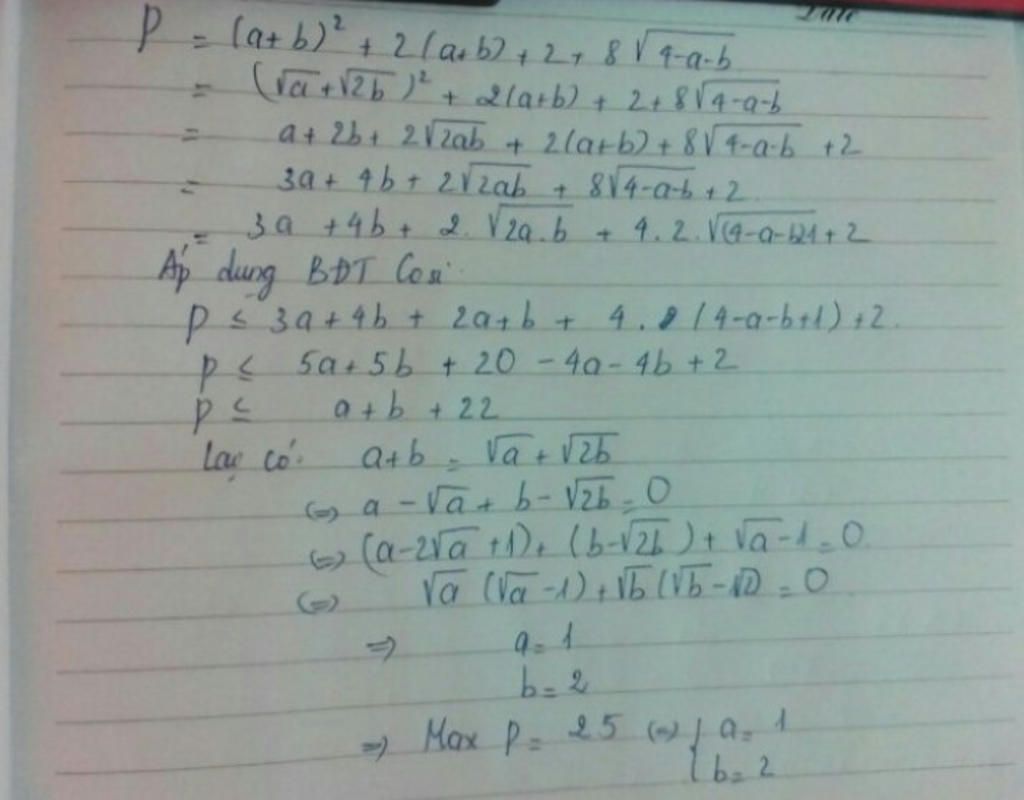 Date
P = (a+b)² + 2(a+b) + 2 + 8√(4-a-b)
= (√a + √2b)² + 2(a+b) + 2 + 8√(4-a-b)
= a + 2b + 2√(2ab) + 2(a+b) + 8√(4-a-b) + 2
= 3a + 4b + 2√(2ab) + 8√(4-a-b) + 2
= 3a + 4b + 2.√(2a.b) + 4.2.√((4-a-b)1) + 2
Áp dụng BĐT Cosi:
P ≤ 3a + 4b + 2a + b + 4. (4-a-b+1) + 2.
P ≤ 5a + 5b + 20 - 4a - 4b + 2
P ≤ a + b + 22
Lại có: a+b = √a + √2b
(=) a - √a + b - √2b = 0
(=) (a - 2√a + 1) + (b - √2b) + √a - 1 = 0
(=) √a (√a - 1) + √b (√b - √2) = 0
=> a = 1
b = 2
=> Max P = 25 (=) { a = 1
b = 2